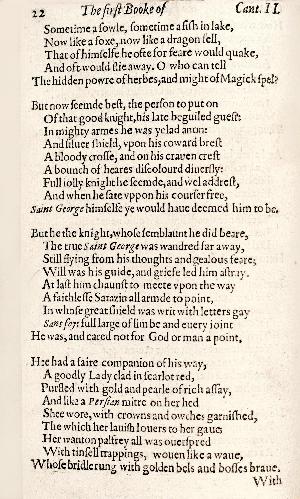 22 The first Booke of Cant. II.
Sometime a fowle, sometime a fish in lake,
Now like a foxe, now like a dragon fell,
That of himselfe he oft for feare would quake,
And oft would flie away. O who can tell
The hidden powre of herbes, and might of Magick spel?
But now seemde best, the person to put on
Of that good knight, his late beguiled guest:
In mighty armes he was yclad anon:
And siluer shield, vpon his coward brest
A bloody crosse, and on his crauen crest
A bounch of heares discolourd diuersly:
Full iolly knight he seemde, and wel addrest,
And when he sate vppon his courser free,
Saint George himselfe ye would haue deemed him to be.
But he the knight, whose semblaunt he did beare,
The true Saint George was wandred far away,
Still flying from his thoughts and gealous feare;
Will was his guide, and griefe led him astray.
At last him chaunst to meete vpon the way
A faithlesse Sarazin all armde to point,
In whose great shield was writ with letters gay
Sans foy: full large of limbe and euery ioint
He was, and cared not for God or man a point.
Hee had a faire companion of his way,
A goodly Lady clad in scarlot red,
Purfled with gold and pearle of rich assay,
And like a Persian mitre on her hed
Shee wore, with crowns and owches garnished,
The which her lauish louers to her gaue;
Her wanton palfrey all was ouerspred
With tinsell trappings, wouen like a waue,
Whose bridle rung with golden bels and bosses braue.
With